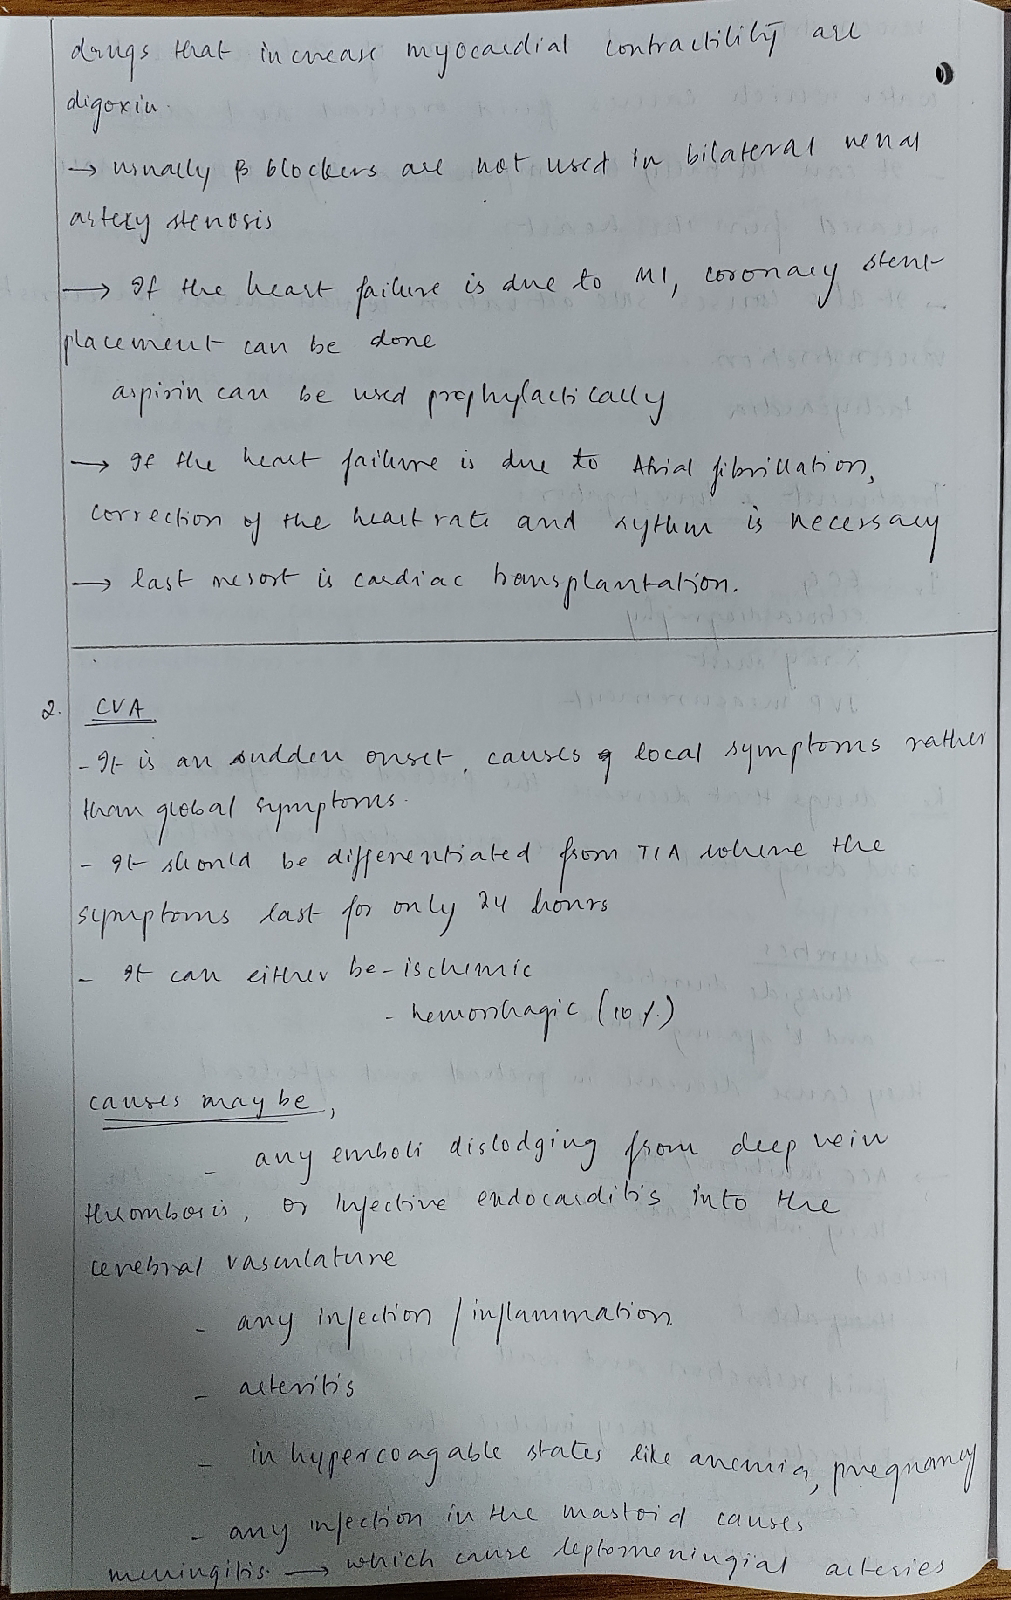 drugs that increase myocardial contractility are
digoxin.
→ usually β blockers are not used in bilateral renal
artery stenosis
→ If the heart failure is due to MI, coronary stent
placement can be done
aspirin can be used prophylactically
→ If the heart failure is due to Atrial fibrillation,
correction of the heart rate and rythm is necessary
→ last resort is cardiac transplantation.
2. CVA
- It is an sudden onset, causes local symptoms rather
than global symptoms.
- It should be differentiated from TIA where the
symptoms last for only 24 hours
- It can either be - ischemic
- hemorrhagic (10%)
causes may be,
- any emboli dislodging from deep vein
thrombosis, or Infective endocarditis into the
cerebral vasculature
- any infection / inflammation
- arteritis
- in hypercoagable states like anemia, pregnancy
- any infection in the mastoid causes
meningitis → which cause leptomeningial arteries